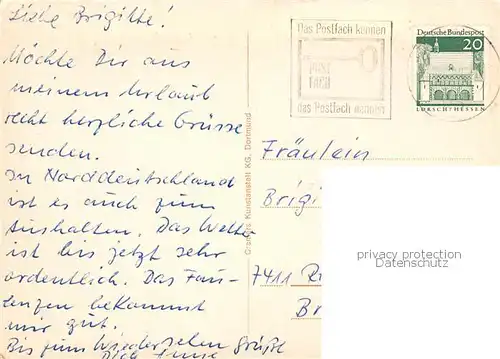 Liebe Brigitte!
Möchte Dir aus
meinem Urlaub
recht herzliche Grüsse
senden.
In Norddeutschland
ist es auch zum
Aushalten. Das Wetter
ist bis jetzt sehr
ordentlich. Das Fau-
lenzen bekommt
mir gut.
Bis zum Wiedersehen grüßt
Dich
Cramers Kunstanstalt KG, Dortmund
Das Postfach kennen
POST
FACH
das Postfach nennen
Deutsche Bundespost
20
LORSCH/HESSEN
Fräulein
Brigi
7411
Br
privacy protection
Datenschutz